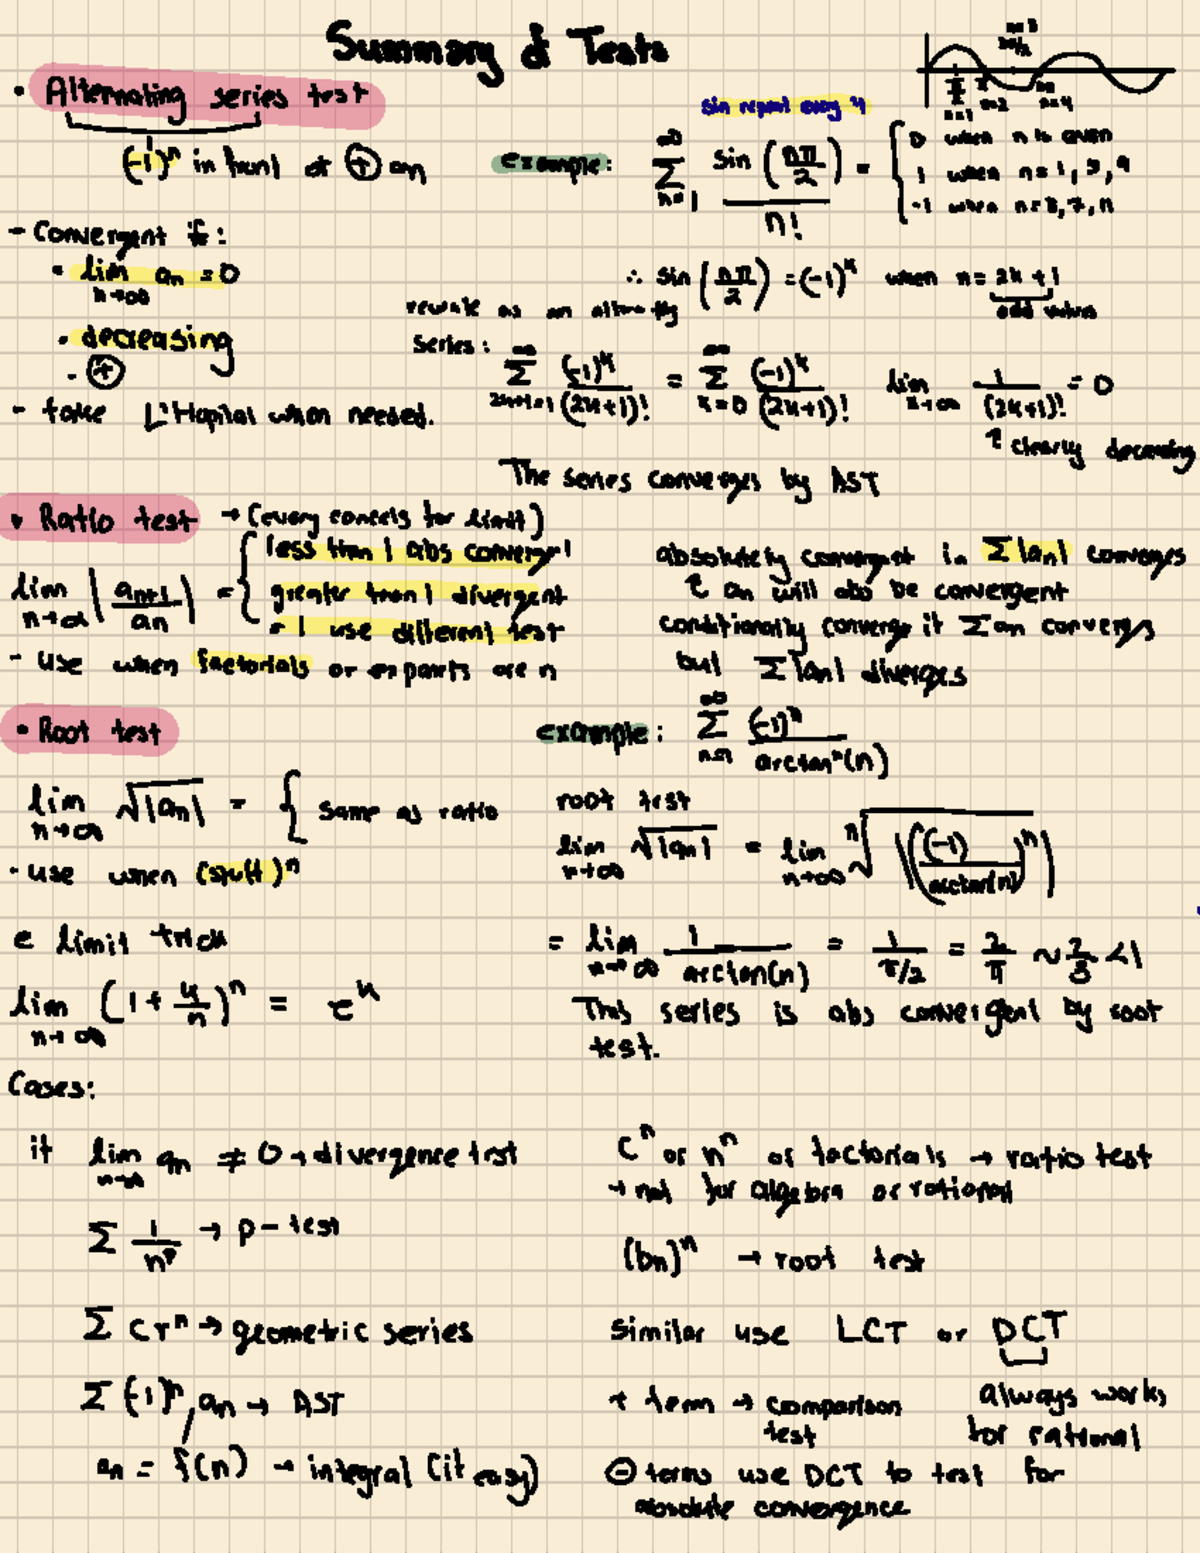 Summary of Tests
• Alternating series test
(-1)ⁿ in front of ⊕ an
- Convergent if:
• lim n→∞ an = 0
• decreasing
- ⊕
- take L'Hopital when needed.
sin repeat every 4
example: ∞ Σ n=1 sin(nπ/2) / n! = { 0 when n is even
1 when n=1, 5, 9
-1 when n=3, 7, 11
∴ sin(nπ/2) = (-1)ᵏ when n = 2k+1
odd values
rewrite as an alternating
series: ∞ Σ 2k+1=1 (-1)ᵏ/(2k+1)! = ∞ Σ k=0 (-1)ᵏ/(2k+1)! lim 1/(2k+1)! = 0
↑ clearly decreasing
The series converges by AST
• Ratio test → (every cancels for limit)
lim n→∞ |an+1/an| = { less than 1 abs converge!
greater than 1 divergent
= 1 use different test
- use when factorials or exponents are n
absolutely convergent in Σ|an| converges
↑ an will also be convergent
conditionally converge if Σan converges
but Σ|an| diverges
• Root test
lim n→∞ √|an| = { same as ratio
- use when (stuff)ⁿ
example: ∞ Σ n=1 (-1)ⁿ/arctanⁿ(n)
root test
lim n→∞ √|an| = lim n→∞ ⁿ√|((-1)/arctan(n))ⁿ|
= lim n→∞ 1/arctan(n) = 1/π/2 = 2/π ~ 2/3 <1
This series is abs convergent by root
test.
e limit trick
lim n→∞ (1 + k/n)ⁿ = eᵏ
Cases:
if lim n→∞ an ≠ 0 → divergence test
Σ 1/nᵖ → p-test
Σ crⁿ → geometric series
Σ(-1)ⁿ an → AST
an = f(n) → integral (if easy)
cⁿ or nⁿ or factorials → ratio test
→ not for algebra or rational
(bn)ⁿ → root test
similar use LCT or DCT
always works
for rational
+ term → comparison
test
⊖ terms use DCT to test for
absolute convergence